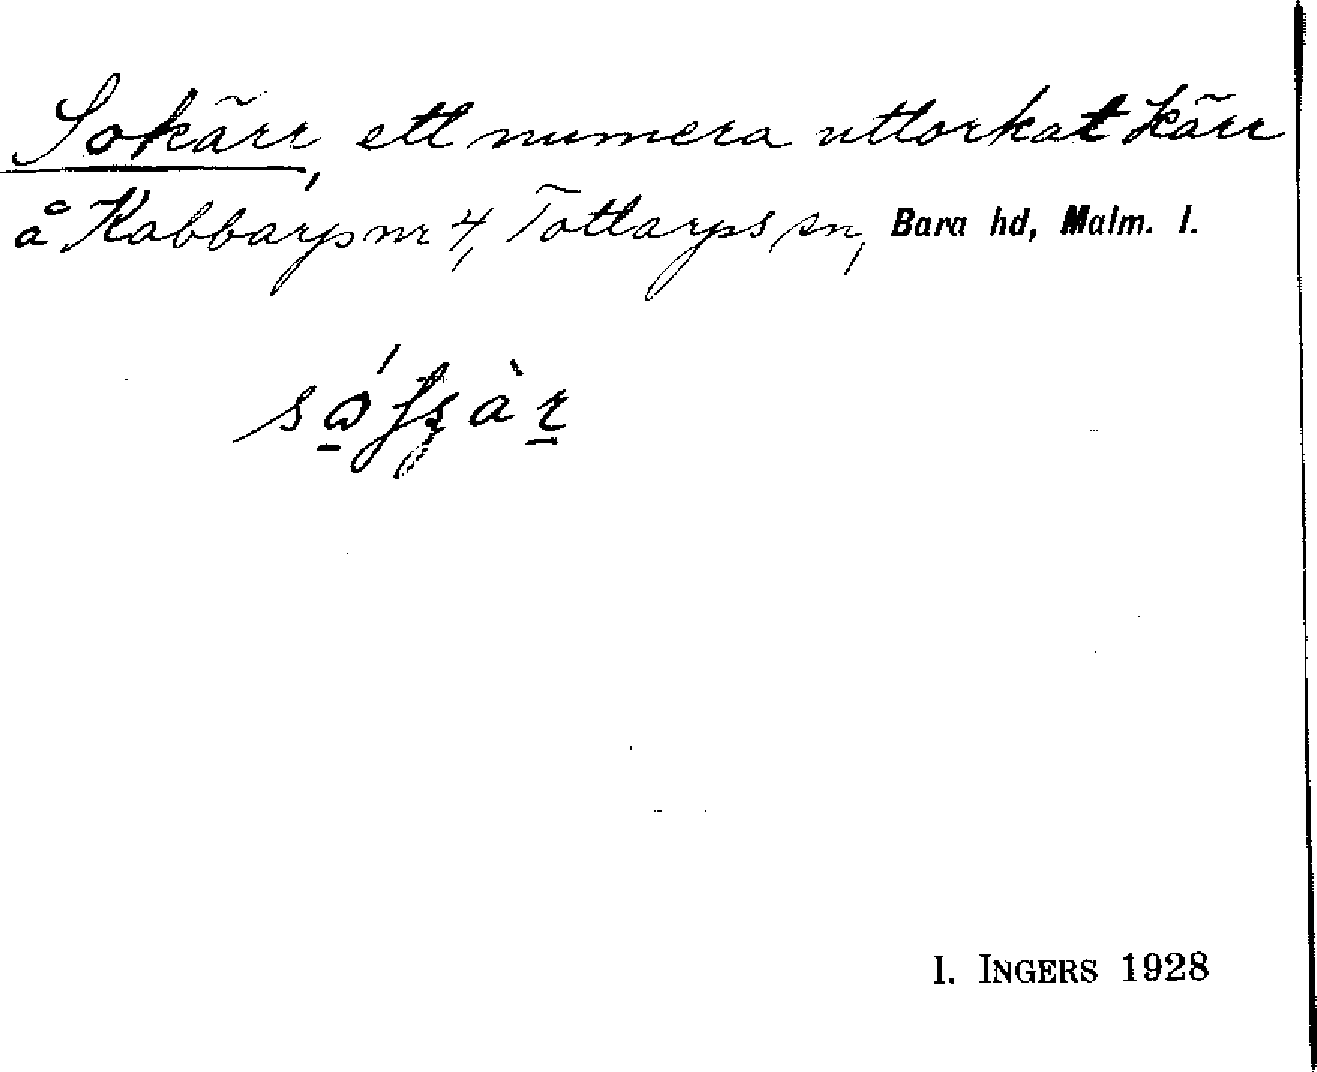 Sokärr, ett numera uttorkat kärr
å Kabbarp nr 4, Tottarps sn, Bara hd, Malm. l.
I. INGERS 1928